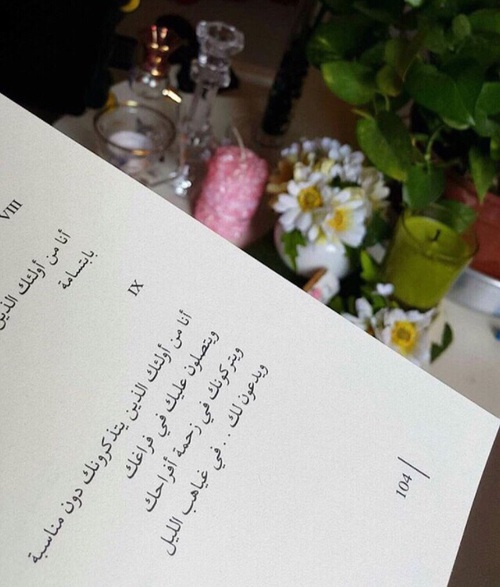 VIII
أنا من أولئك الذين
بابتسامة
IX
أنا من أولئك الذين يتذكرونك دون مناسبة
ويتصلون عليك في فراغك
ويتركونك في زحمة أفراحك
ويدعون لك ... في غياهب الليل
104